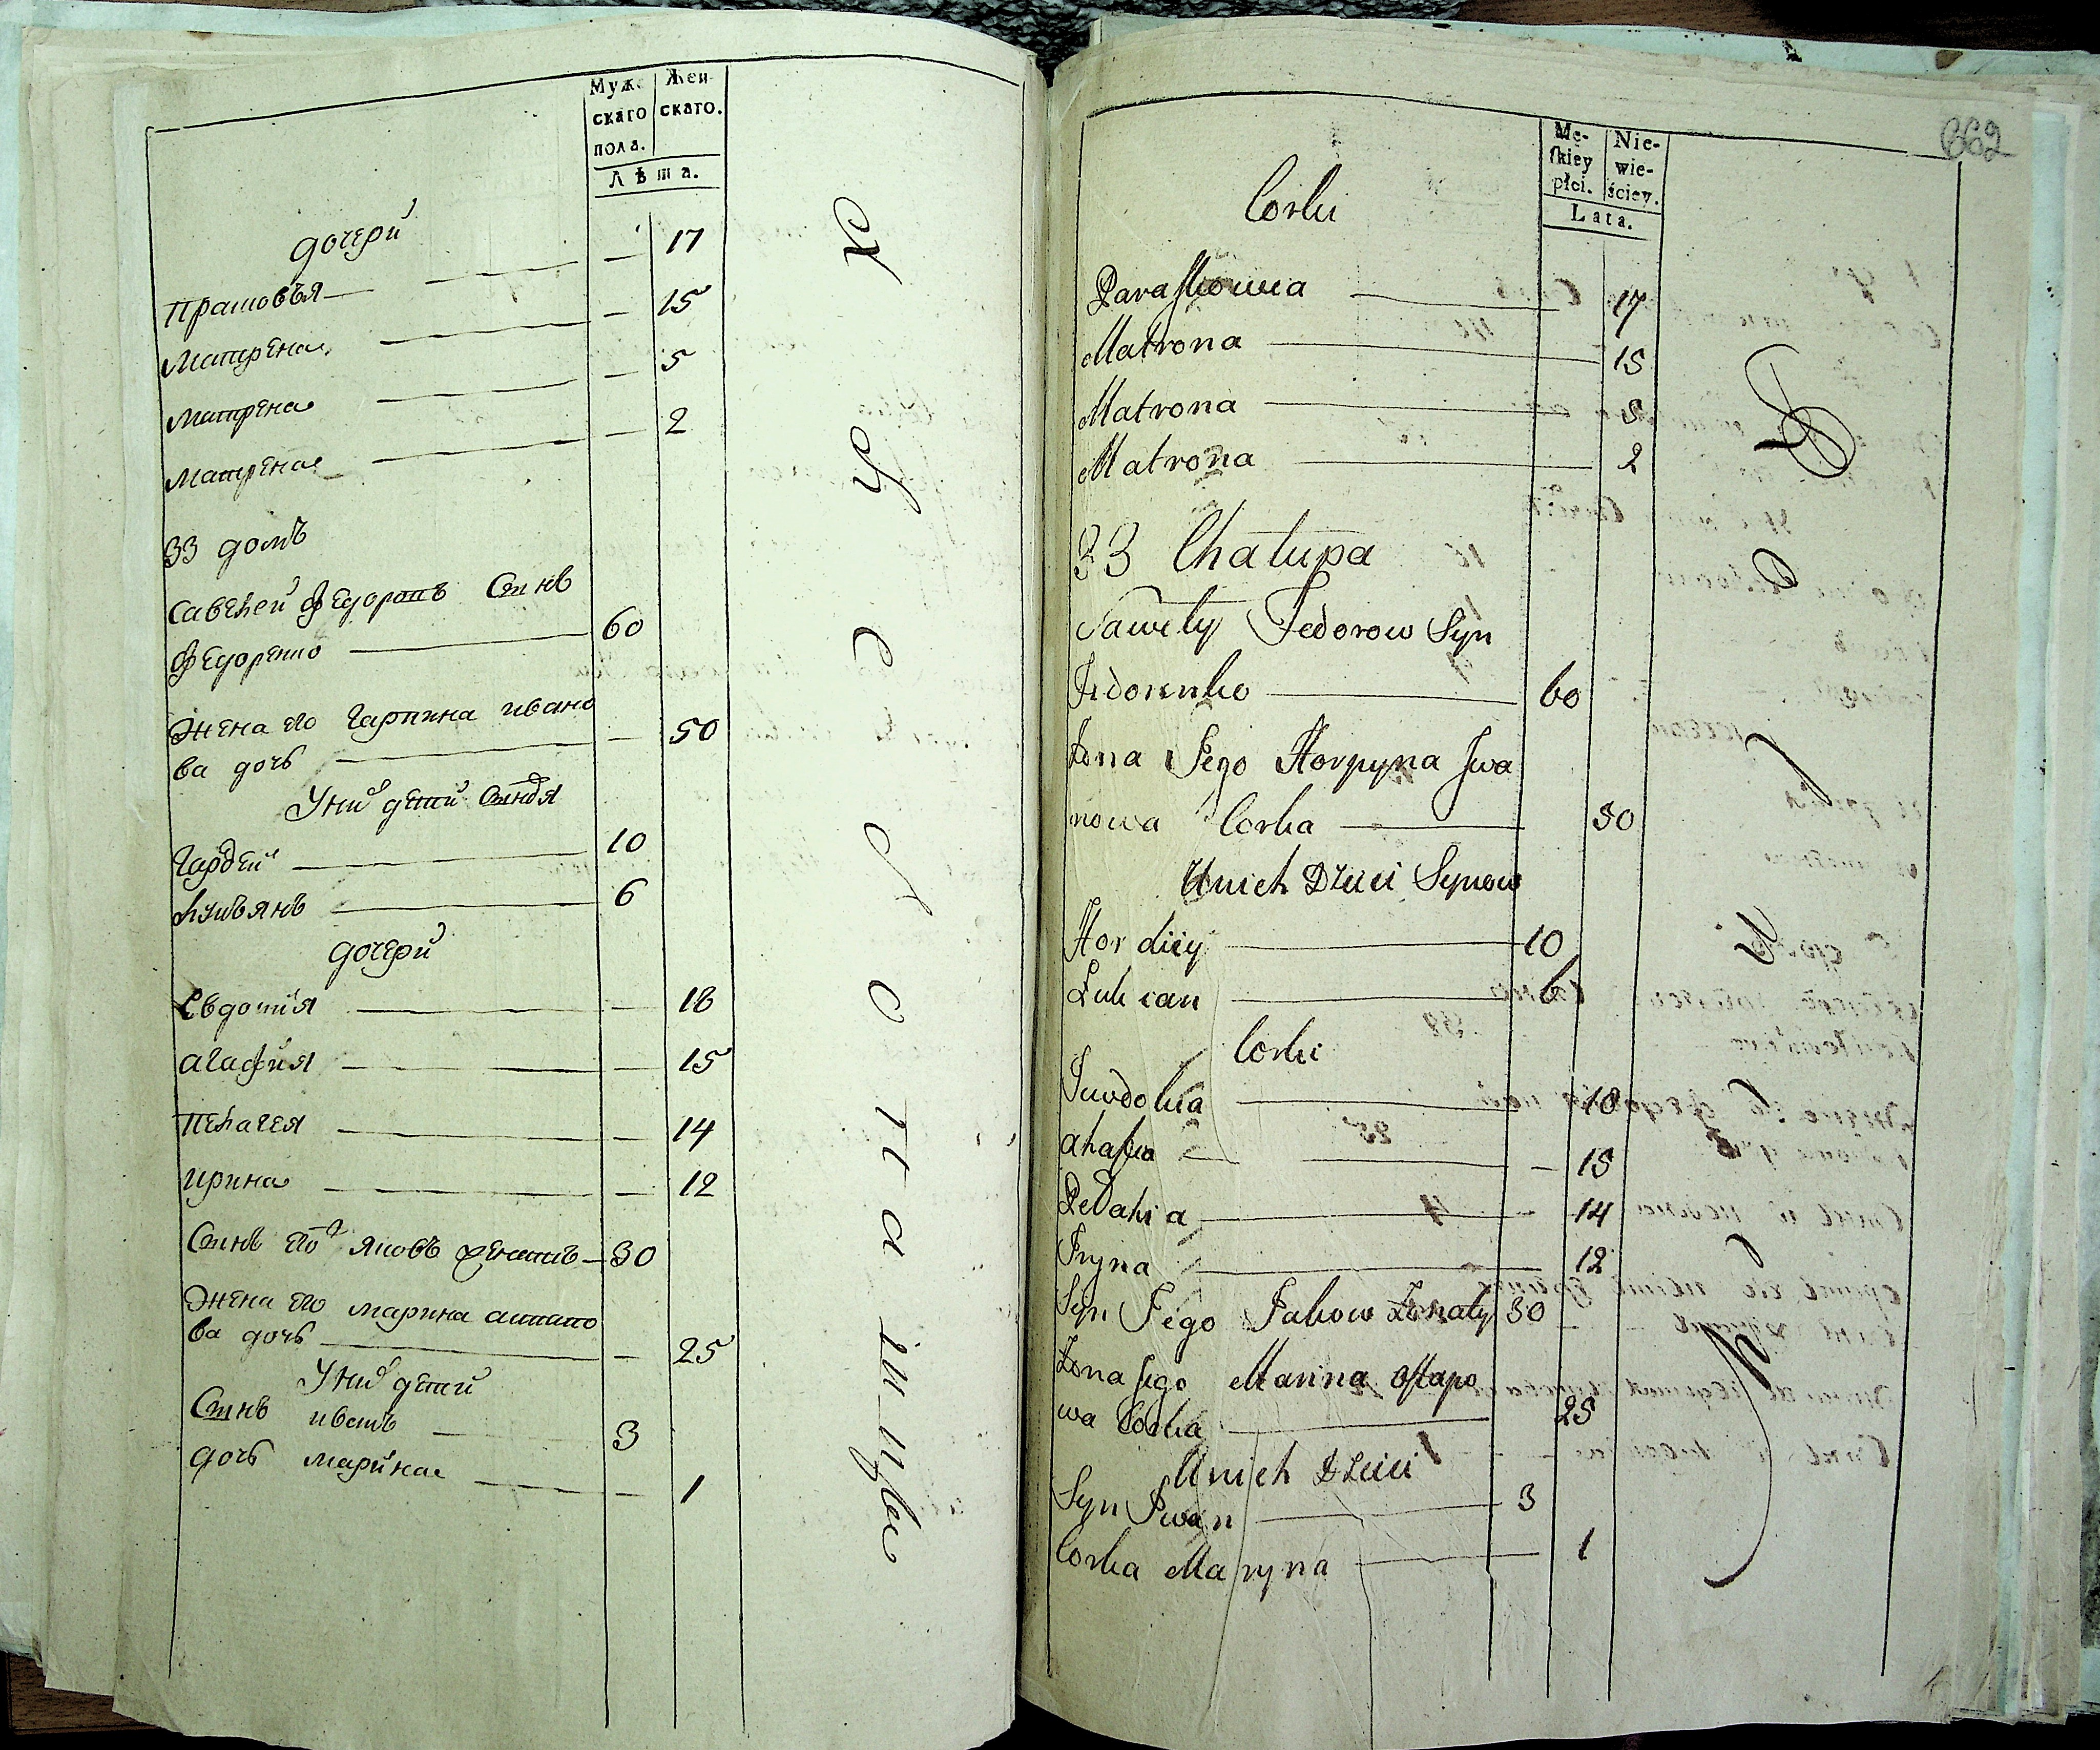 Муже Жен
скаго скаго.
пола.
Лѣта.
дочери
Прасковъя — — — 17
Матрена — — 15
Матрена — — 5
Матрена — — 2
33 домъ
Савелей Федоровъ Сынъ
Федоренко — 60
Жена его Гарпина ивано
ва дочь — — 50
Уних дети Сыновя
Гардей — 10
Лукъянъ — 6
дочери
Евдокия — — — 18
агафия — — — 15
Пелагея — — — 14
ирина — — — 12
Сынъ его яковъ женатъ — 30
Жена его марина астапо
ва дочь — — 25
Уних дети
Сынъ иванъ — 3
дочь марина — — 1
662
Mę- Nie-
skiey wie-
płci. ściey.
Lata.
Corki
Paraskowia — 17
Matrona — 15
Matrona — 5
Matrona — 2
33 Chałupa
Sawely Fedorow Syn
Fedorenko — 60
Żona Jego Horpyna Iwa
nowa Corka — 50
Unich Dzieci Synow
Hordiiy — 10
Łukian — 6
Corki
Iuwdokia — 18
ahafia — — — 15
Pelahia — 14
Iryna — 12
Syn Jego Jakow Żonaty 30
Żona Jego Marina Ostapo
wa Corka — 25
Unich Dzieci
Syn Iwan — 3
Corka Maryna — 1